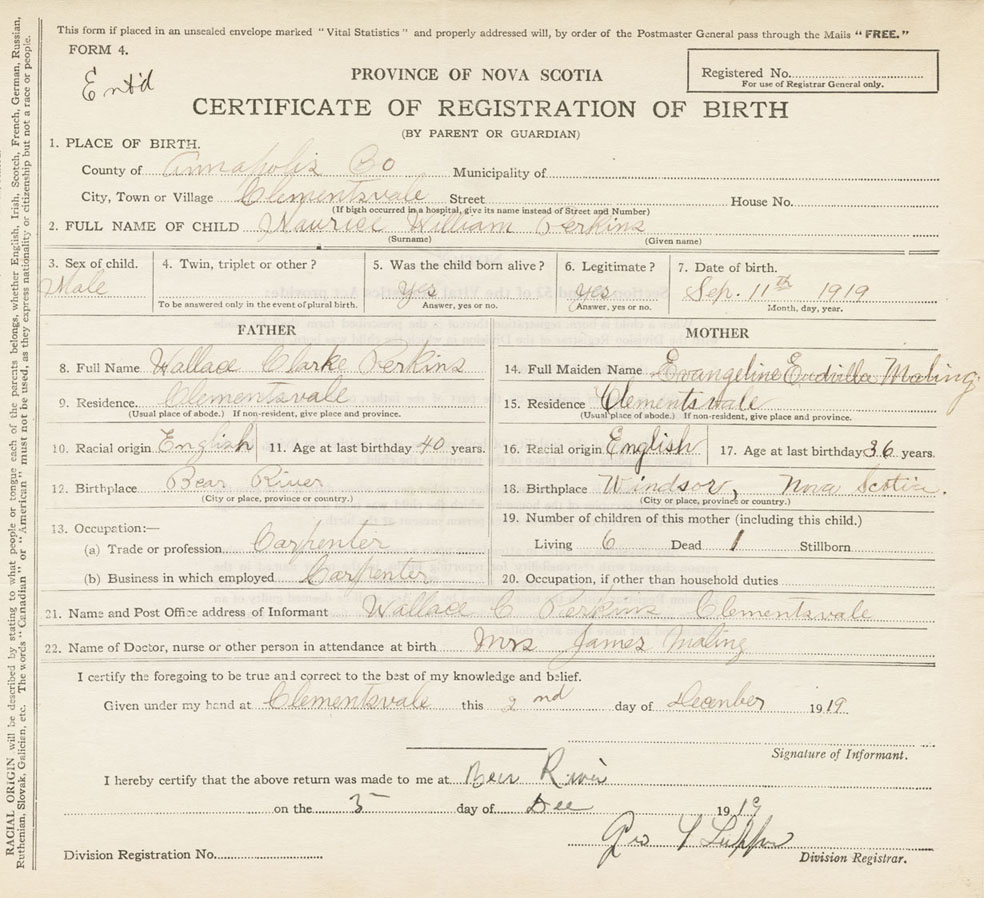 This form if placed in an unsealed envelope marked "Vital Statistics" and properly addressed will, by order of the Postmaster General pass through the Mails "FREE."
FORM 4.
Ent'd
Registered No.
For use of Registrar General only.
PROVINCE OF NOVA SCOTIA
CERTIFICATE OF REGISTRATION OF BIRTH
(BY PARENT OR GUARDIAN)
1. PLACE OF BIRTH.
County of Annapolis Co Municipality of
City, Town or Village Clementsvale Street House No.
(If birth occurred in a hospital, give its name instead of Street and Number)
2. FULL NAME OF CHILD Maurice William Perkins
(Surname) (Given name)
3. Sex of child. 4. Twin, triplet or other? 5. Was the child born alive? 6. Legitimate? 7. Date of birth.
Male Yes yes Sep. 11th 1919
To be answered only in the event of plural birth. Answer, yes or no. Answer, yes or no. Month, day, year.
FATHER MOTHER
8. Full Name Wallace Clarke Perkins 14. Full Maiden Name Evangeline Maling
9. Residence. Clementsvale 15. Residence Clementsvale
(Usual place of abode.) If non-resident, give place and province. (Usual place of abode.) If non-resident, give place and province.
10. Racial origin English 11. Age at last birthday 40 years. 16. Racial origin English 17. Age at last birthday 36 years.
12. Birthplace Bear River 18. Birthplace Windsor, Nova Scotia.
(City or place, province or country.) (City or place, province or country.)
13. Occupation:— 19. Number of children of this mother (including this child.)
(a) Trade or profession Carpenter Living 6 Dead 1 Stillborn
(b) Business in which employed Carpenter 20. Occupation, if other than household duties
21. Name and Post Office address of Informant Wallace C Perkins Clementsvale
22. Name of Doctor, nurse or other person in attendance at birth Mrs James Maling
I certify the foregoing to be true and correct to the best of my knowledge and belief.
Given under my hand at Clementsvale this 2nd day of December 1919
Signature of Informant.
I hereby certify that the above return was made to me at Bear River
on the 5 day of Dec 1919
Geo
Division Registration No. Division Registrar.
RACIAL ORIGIN will be described by stating to what people or tongue each of the parents belongs, whether English, Irish, Scotch, French, German, Russian,
Ruthenian, Slovak, Galician, etc. The words "Canadian" or "American" must not be used, as they express nationality or citizenship but not a race or people.